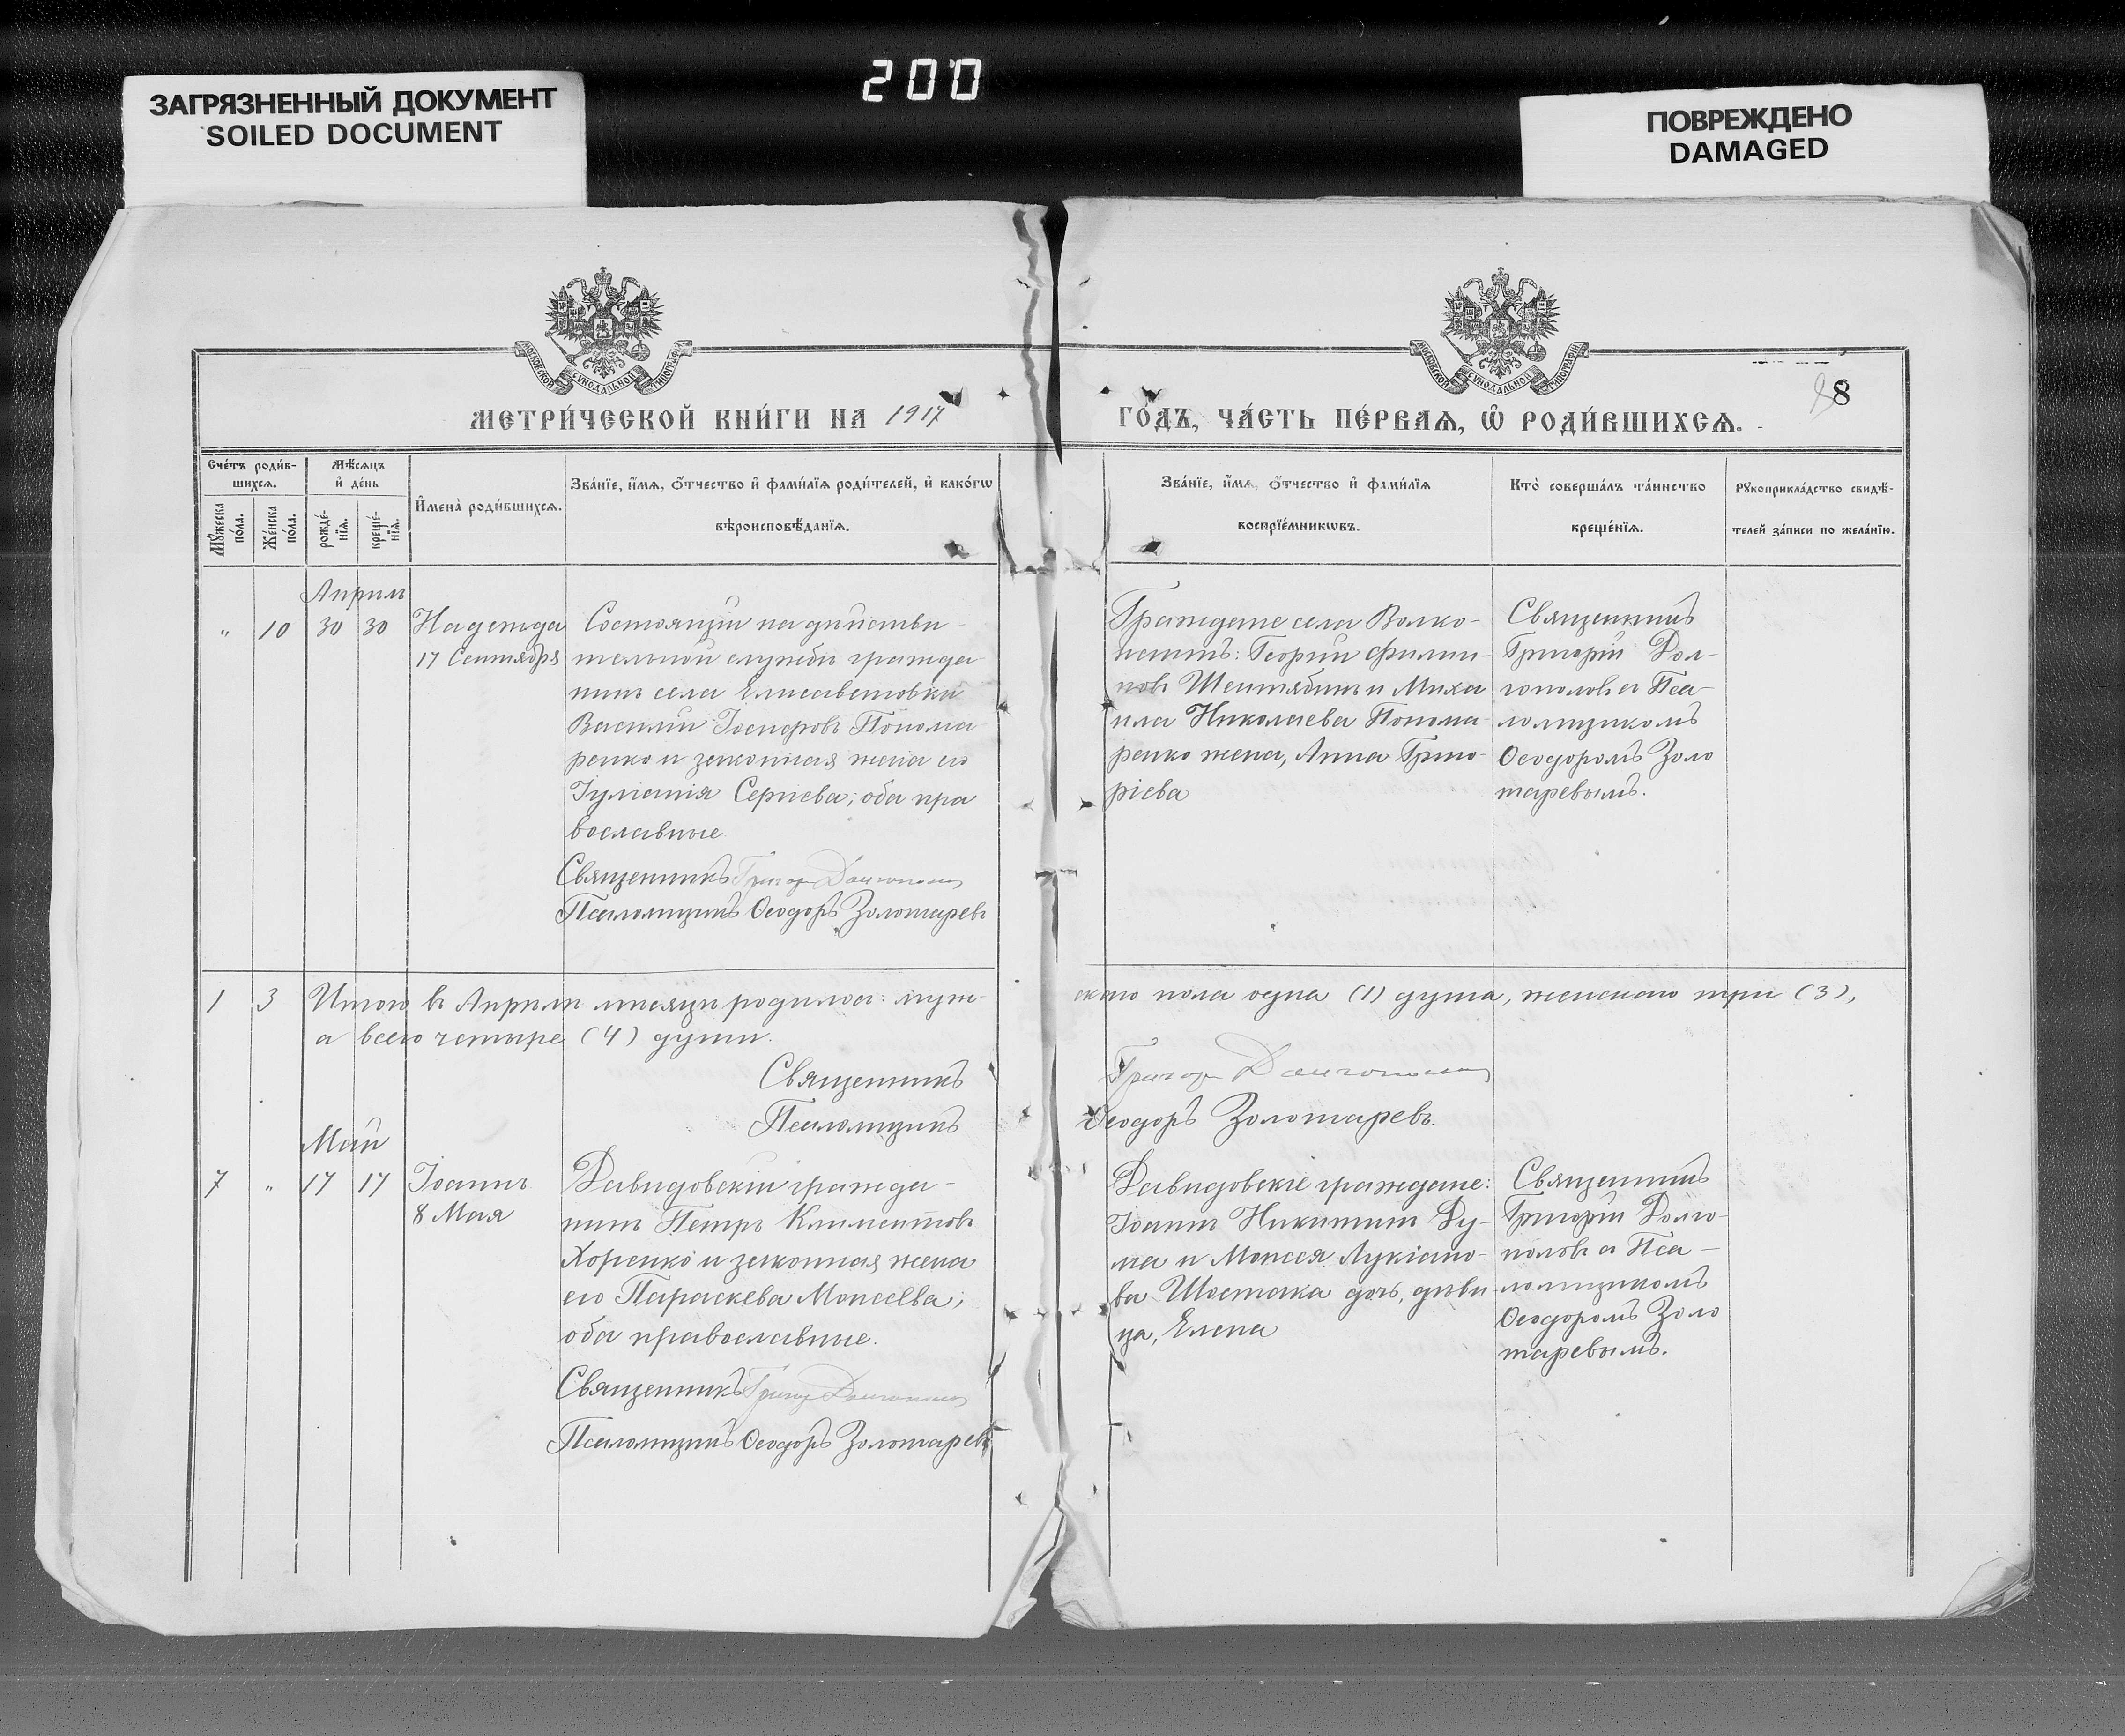 200
ЗАГРЯЗНЕННЫЙ ДОКУМЕНТ
SOILED DOCUMENT
ПОВРЕЖДЕНО
DAMAGED
МОСКОВСКОЙ СѴНОДАЛЬНОЙ ТИПОГРАФІИ
МОСКОВСКОЙ СѴНОДАЛЬНОЙ ТИПОГРАФІИ
8
МЕТРИ́ЧЕСКОЙ КНИ́ГИ НА 1917
ГО́ДЪ, ЧА́СТЬ ПЕ́РВАѦ, Ѽ РОДИ́ВШИХСѦ.
Сче́тъ роди́в-
шихсѧ.
Мѣ́сѧцъ
и҆ де́нь
Мꙋ́жеска
по́ла.
Же́нска
по́ла.
рожде́-
нїѧ.
креще́-
нїѧ.
И҆мена̀ роди́вшихсѧ.
Зва́нїе, и҆́мѧ, ѻ҆́тчество и҆ фами́лїѧ роди́телей, и҆ како́гѡ
вѣроисповѣ́данїѧ.
Зва́нїе, и҆́мѧ, ѻ҆́тчество и҆ фами́лїѧ
воспрїе́мникѡвъ.
Кто̀ соверша́лъ та́инство
креще́нїѧ.
Рꙋкоприкла́дство свидѣ́-
телей за́писи по жела́нїю.
Апрѣль
" 10 30 30 Надежда
17 Сентября
Состоящій на дѣйстви-
тельной службѣ гражда-
нинъ села Елисаветовки
Василій Ѳеодоровъ Понома-
ренко и законная жена его
Іуліанія Сергіева; оба пра
вославные.
Священникъ Григорій Долгополовъ
Псаломщикъ Ѳеодоръ Золотаревъ
Граждане села Волко-
Георгій Филип-
повъ и Миха
ила Николаева Понома-
ренко жена, Анна Григо-
ріева
Священникъ
Григорій Дол-
гополовъ съ Пса-
ломщикомъ
Ѳеодоромъ Золо
таревымъ.
1 3 Итого въ Апрѣлѣ мѣсяцѣ родилось: муж-
скаго пола одна (1) душа, женскаго три (3),
а всего четыре (4) души.
Священникъ Григорій Долгополовъ
Псаломщикъ Ѳеодоръ Золотаревъ.
Май
7 " 17 17 Іоаннъ
8 Мая
Давидовскій гражда-
нинъ Петръ Климентовъ
Хоренко и законная жена
его Параскева Моисеева;
оба православные.
Священникъ Григорій Долгополовъ
Псаломщикъ Ѳеодоръ Золотаревъ
Давидовскіе граждане:
Іоаннъ Никитинъ Ду-
ма и Моисея Лукіано-
ва Шостака дочь, дѣви
ца, Елена
Священникъ
Григорій Долго-
половъ съ Пса-
ломщикомъ
Ѳеодоромъ Золо
таревымъ.